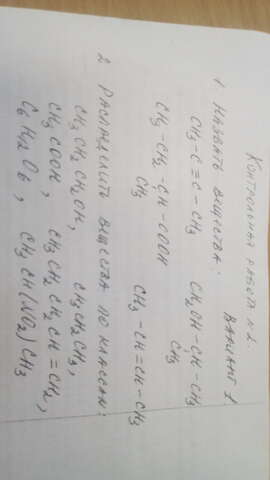 Контрольная работа №2.
Вариант 1
1 Назвать вещества:
CH3-C≡C-CH3 CH2OH-CH-CH3
CH3
CH3-CH2-CH-COOH CH3-CH=CH-CH3
CH3
2 Распределить вещества по классам:
CH3CH2CH2OH, CH3CH2CH3,
CH3COOH, CH3CH2CH2CH=CH2,
C6H12O6, CH3CH(NO2)CH3